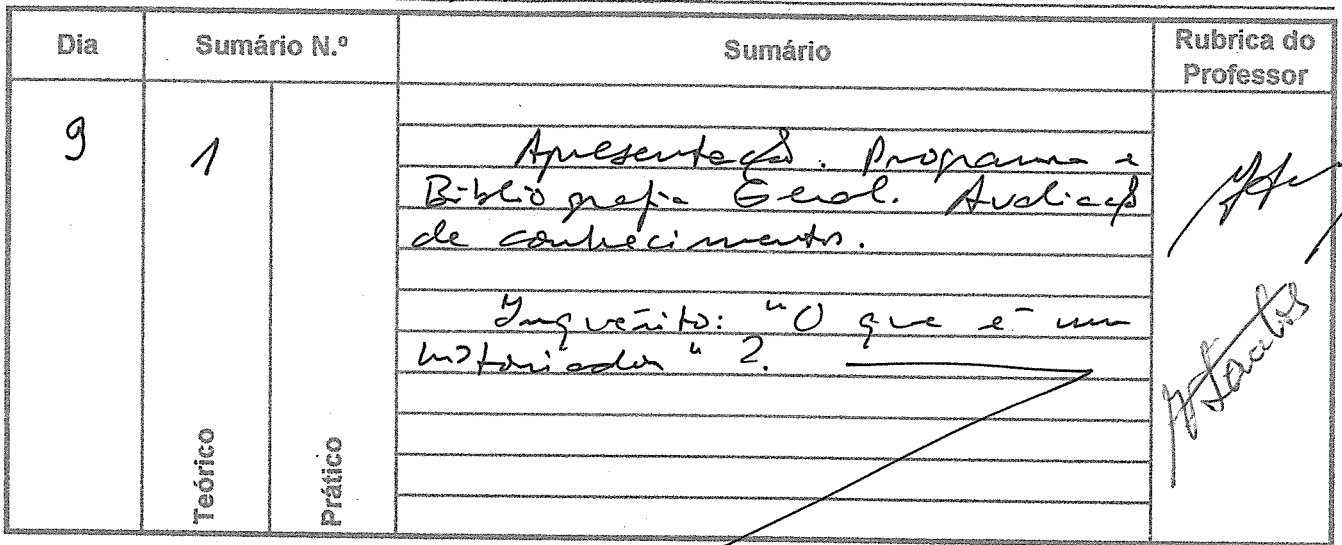 Dia Sumário N.º Sumário Rubrica do Professor
9 1
Apresentação. Programa e
Bibliografia Geral. Avaliação
de conhecimentos.
Inquérito: "O que é um
historiador"?
Teórico Prático